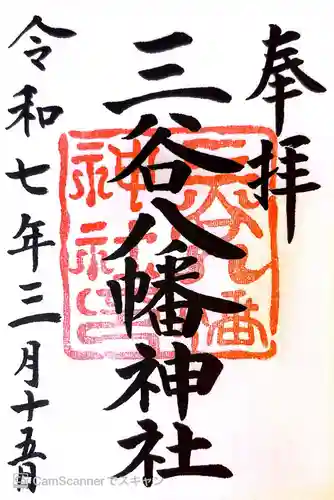 奉拝
三谷八幡神社
令和七年三月十五日
CamScanner でスキャン